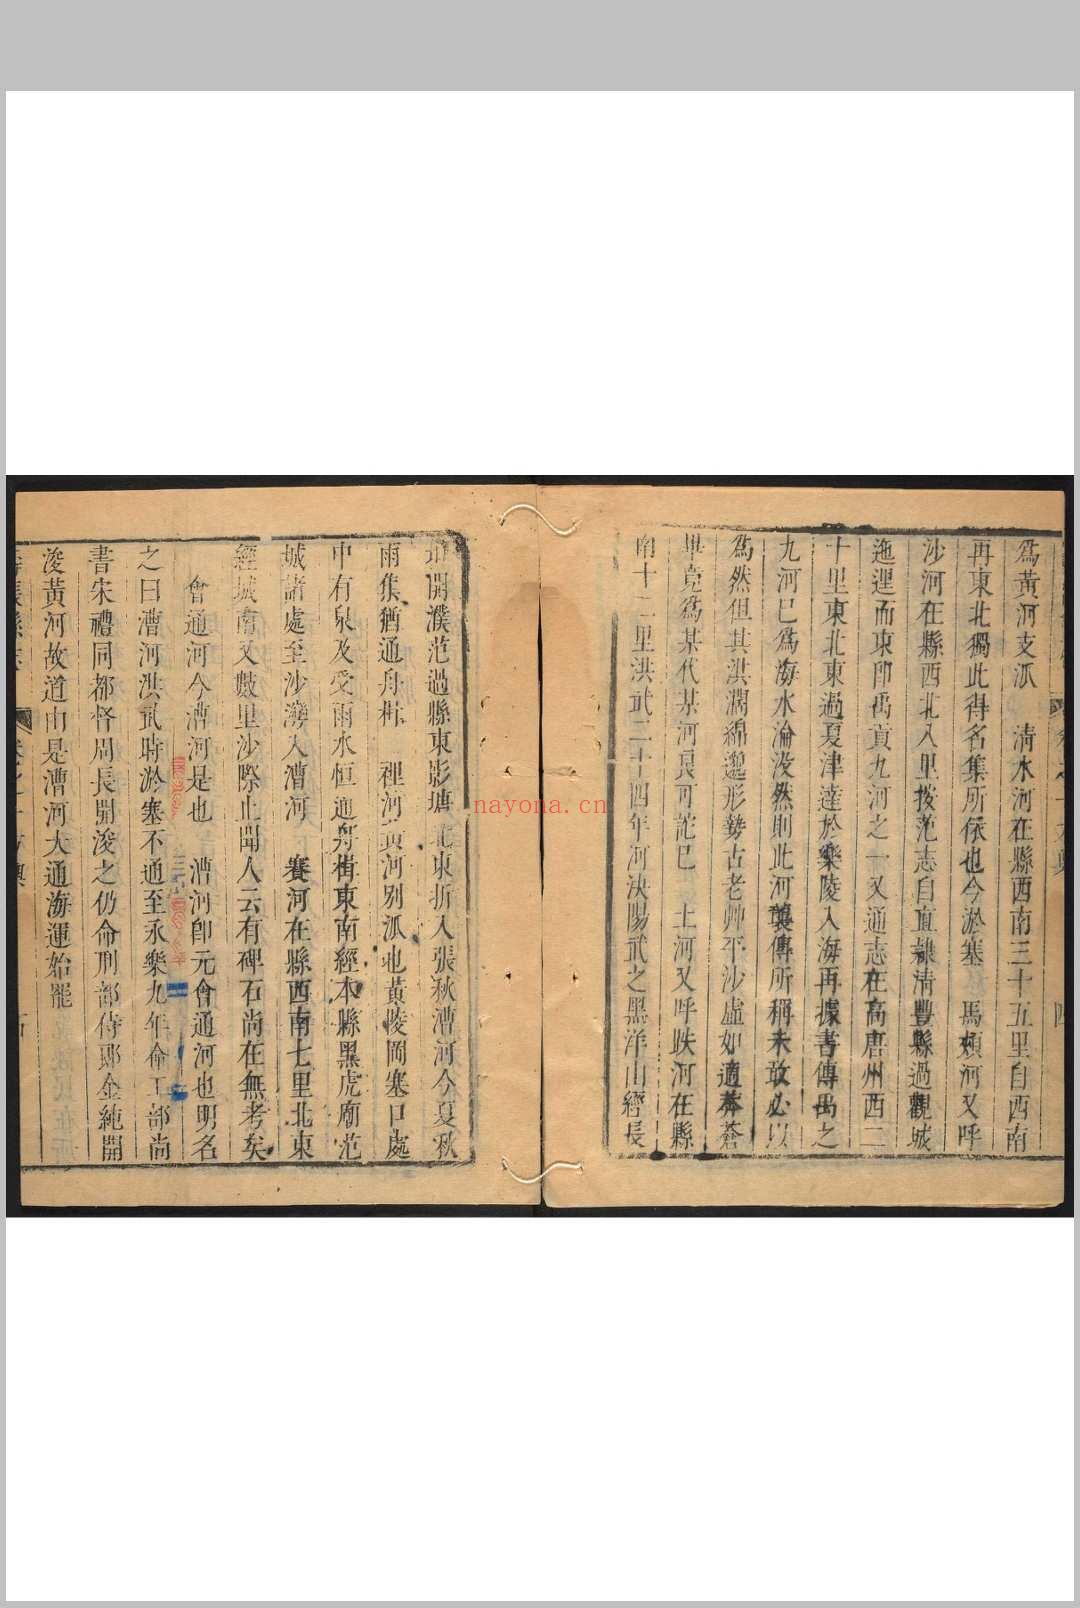 爲黃河支派　淸水河在縣西南三十五里自西南
再東北獨此得名集所依也今淤塞　馬頰河又呼
沙河在縣西北入里按范志自直隸淸豐縣過觀城
迤邐而東卽禹貢九河之一又通志在高唐州西二
十里東北東過夏津達於樂陵入海再據書傳禹之
九河已爲海水淪没然則此河襲傳所稱未敢必以
爲然但其洪濶綿邈形勢古老艸平沙虛如適莽蒼
畢竟爲某代某河艮可詑巳　上河又呼趺河在縣
南十二里洪武二十四年河決陽武之黑洋山經長
垣開濮范過縣東影塘北東折入張秋漕河今夏秋
雨集猶通舟楫　裡河黃河别派也黃陵岡塞口處
中有泉及受雨水恒通舟楫東南經本縣黑虎廟范
城諸處至沙灣入漕河　賽河在縣西南七里北東
經城南又數里沙際止聞人云有碑石尚在無考矣
會通河今漕河是也　漕河卽元會通河也明名
之曰漕河洪武時淤塞不通至永樂九年命工部尚
書宋禮同都督周長開浚之仍命刑部侍郎金純開
浚黃河故道由是漕河大通海運始罷
nayona.cn